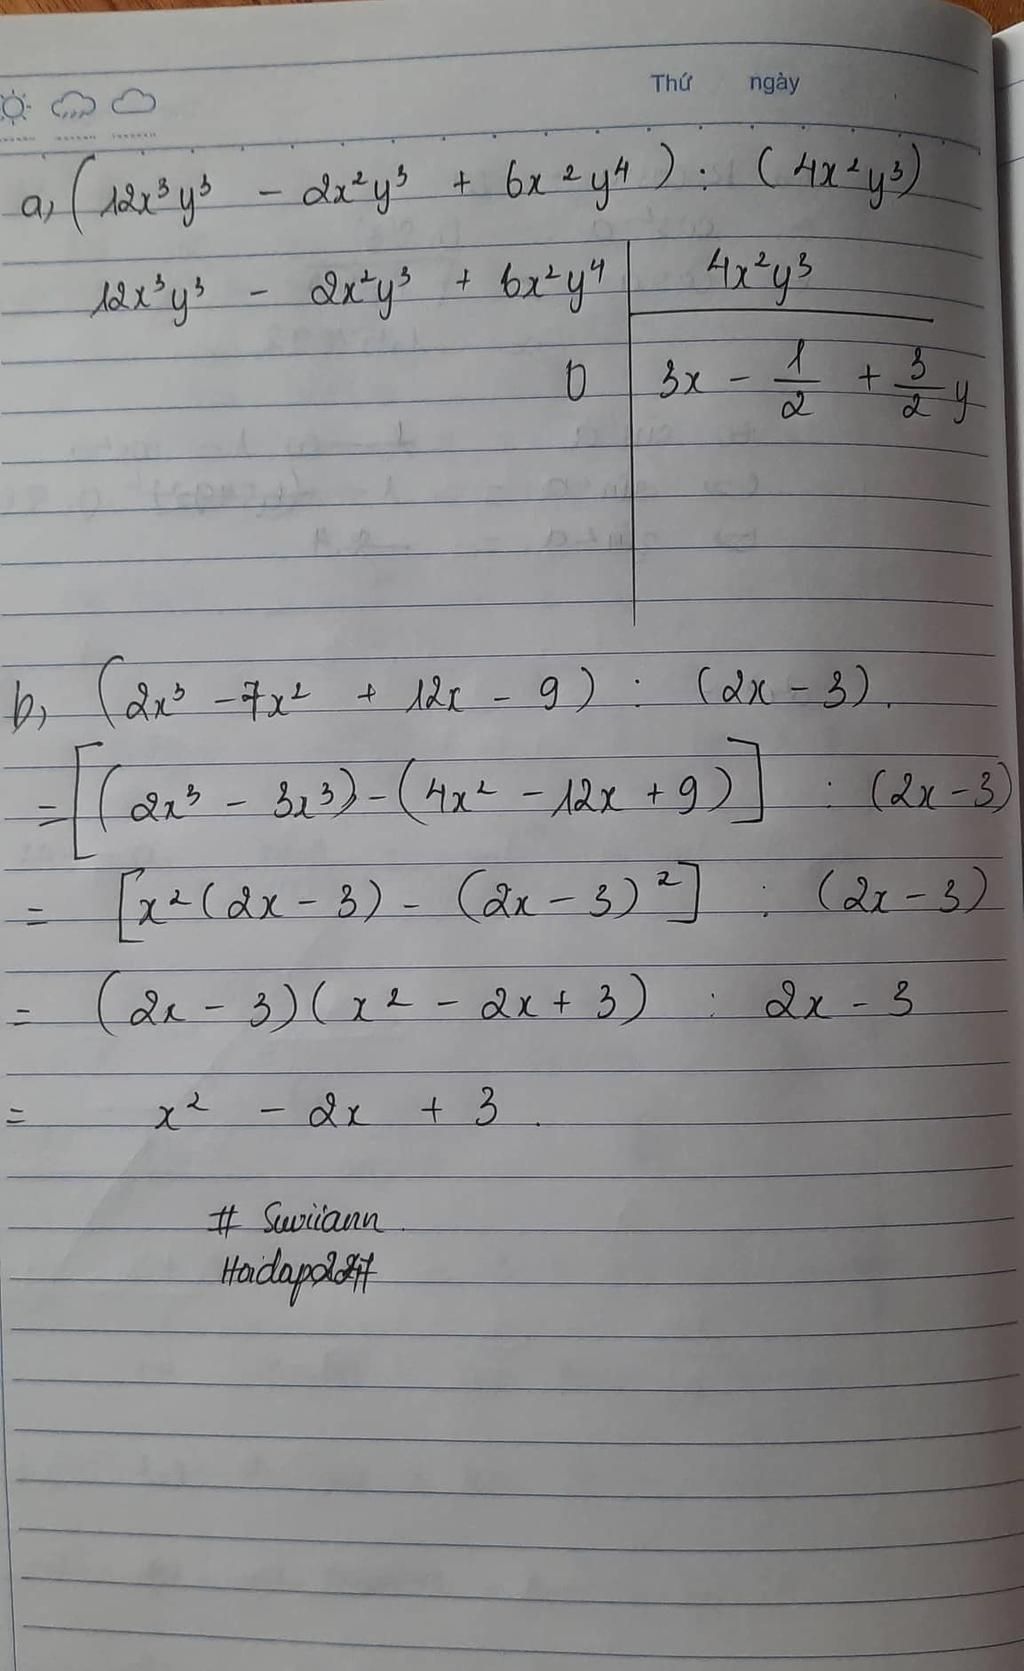 Thứ ngày
a, (12x³y³ - 2x²y³ + 6x²y⁴) : (4x²y³)
12x³y³ - 2x²y³ + 6x²y⁴ | 4x²y³
0 | 3x - 1/2 + 3/2 y
b, (2x³ - 7x² + 12x - 9) : (2x - 3).
= [(2x³ - 3x³) - (4x² - 12x + 9)] : (2x - 3)
= [x²(2x - 3) - (2x - 3)²] : (2x - 3)
= (2x - 3)(x² - 2x + 3) : 2x - 3
= x² - 2x + 3.
# Suviiann.
Hoidap247